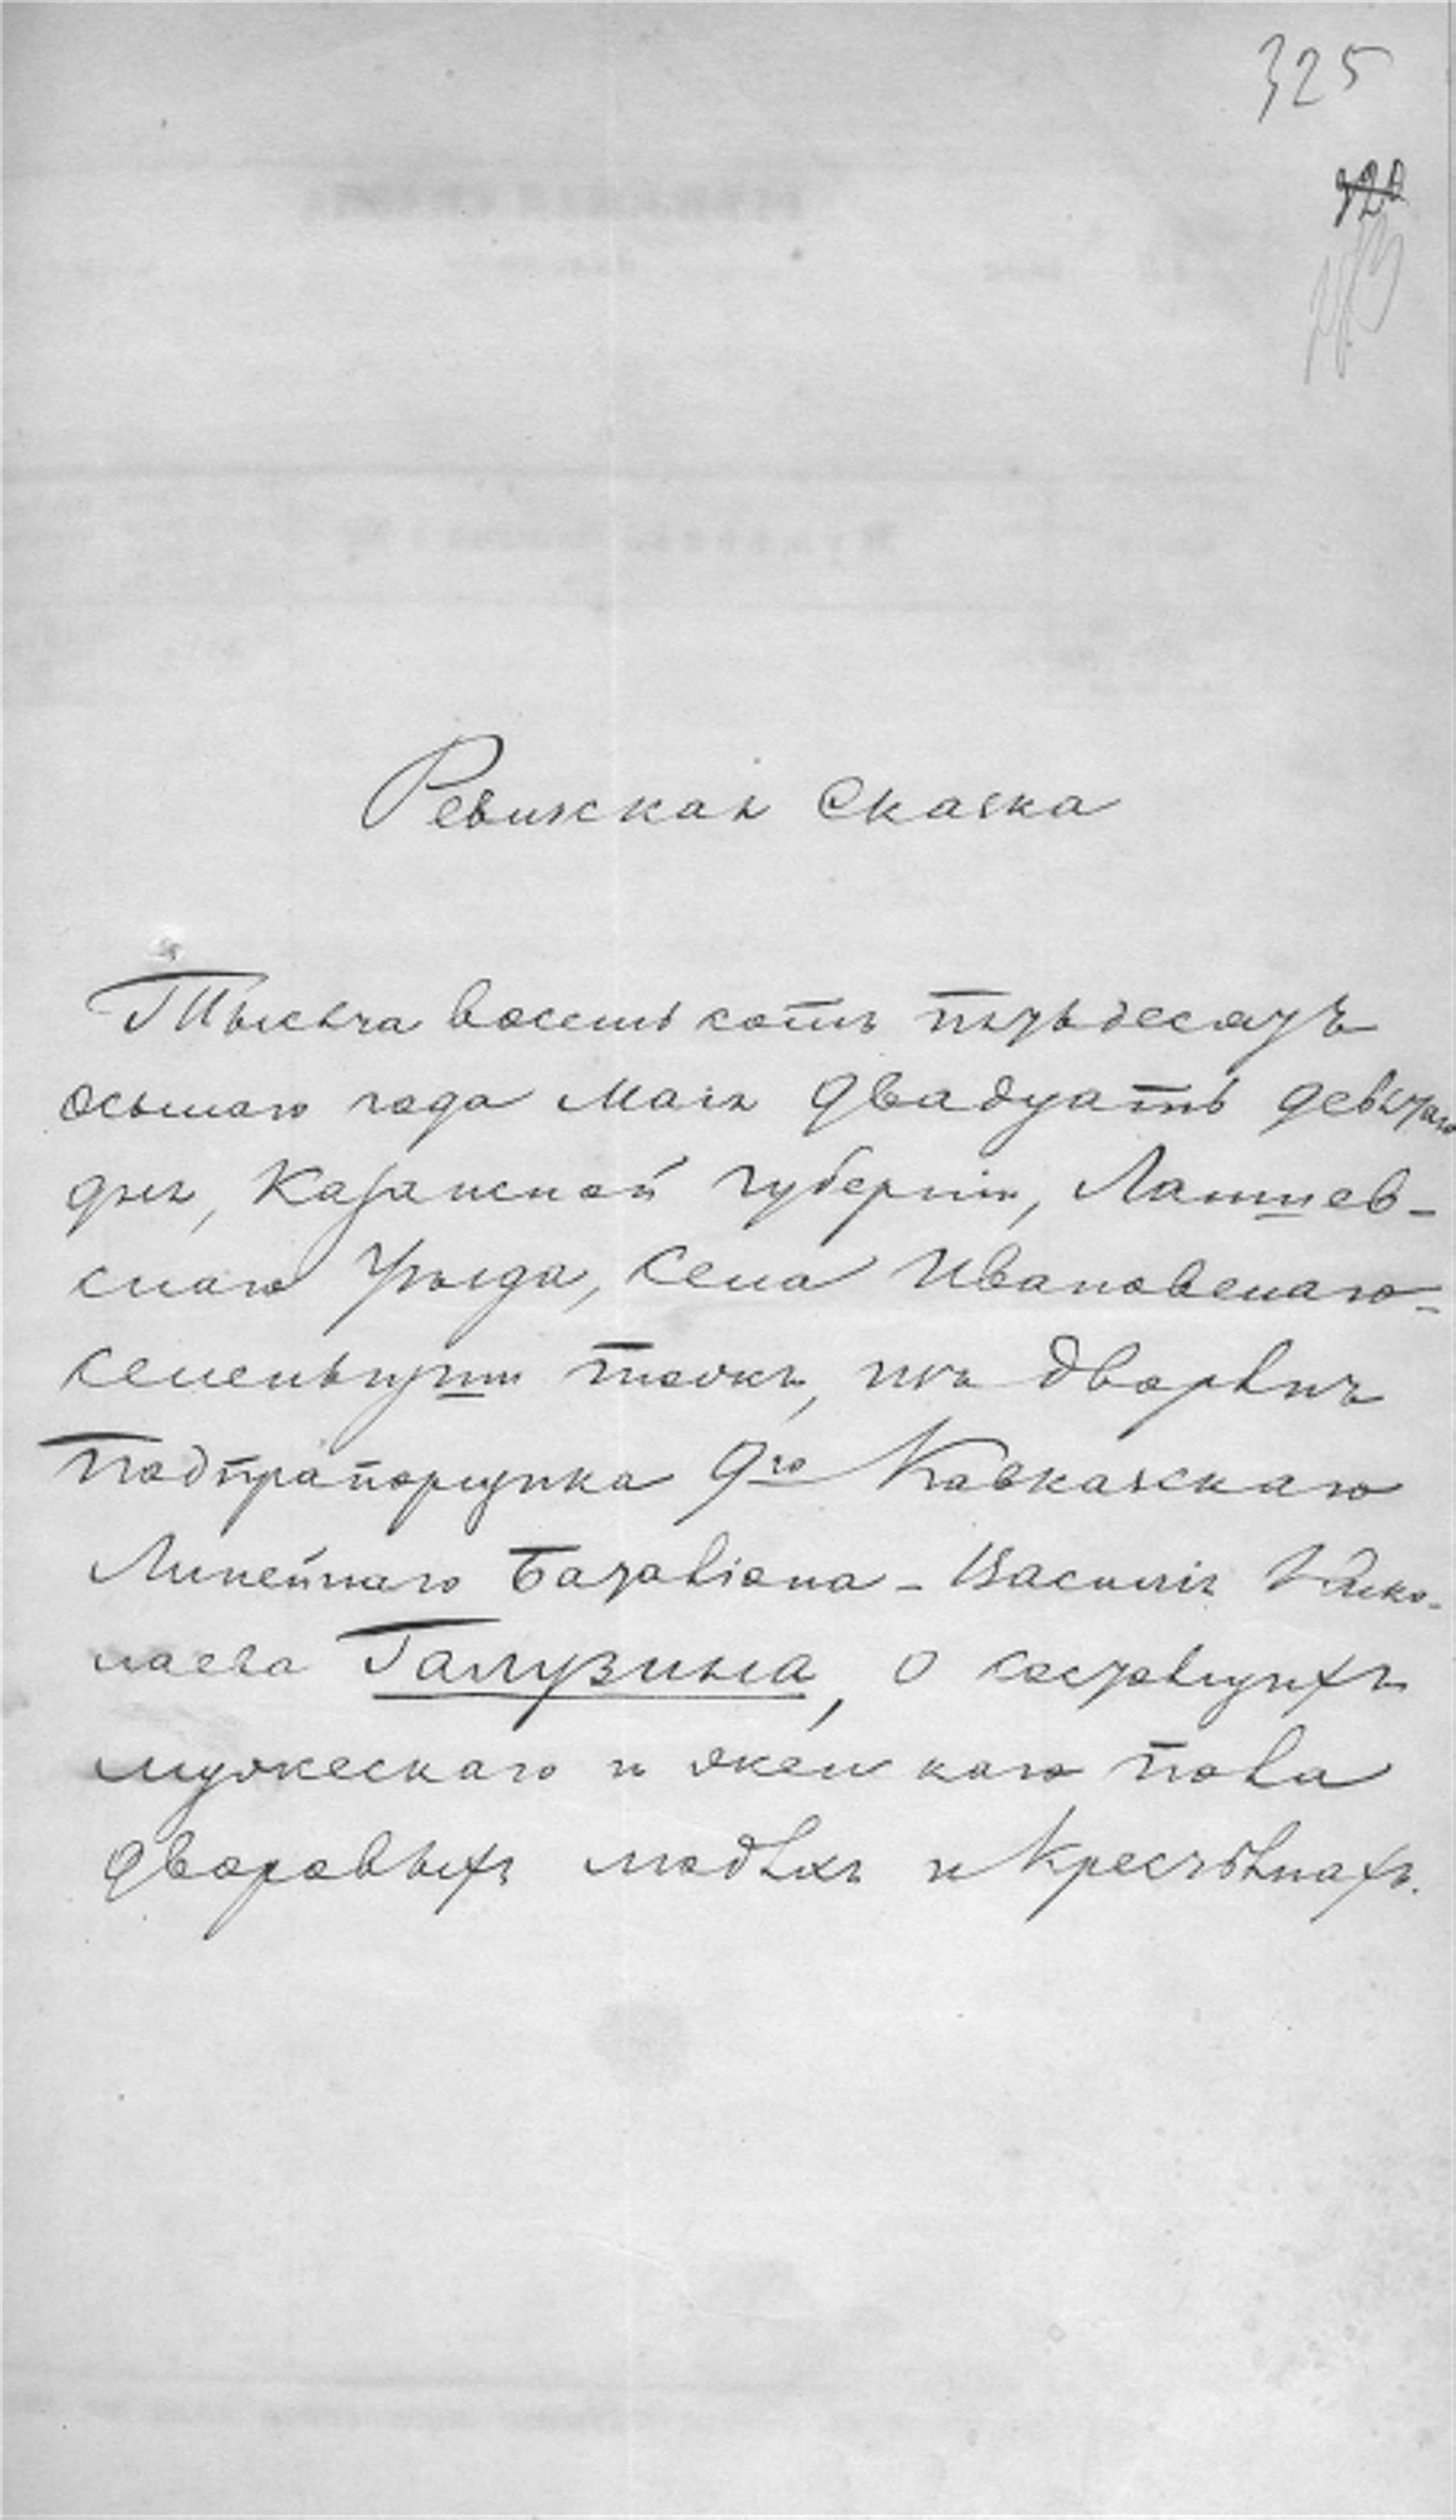 325
Ревизская Сказка
Тысяча восемь сотъ пятьдесятъ
осьмаго года Маія двадцать девятаго
дня, Казанской губерніи, Лаишев-
скаго Уѣзда, села Ивановскаго-
тожъ, изъ дворянъ
Подпрапорщика 9го Кавказскаго
Линейнаго Баталіона - Василія Нико-
лаева Галузина, о состоящихъ
мужескаго и женскаго пола
дворовыхъ людяхъ и Крестьянахъ.